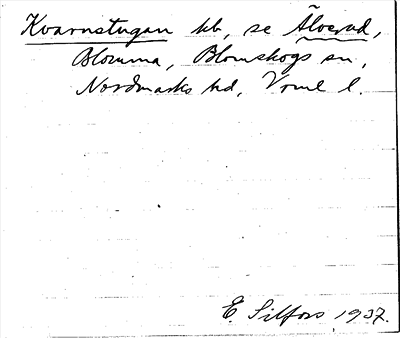 Kvarnstugan lb, se Älverud,
Blomma, Blomskogs sn,
Nordmarks hd, Vrml l.
E. Silfors 1937.